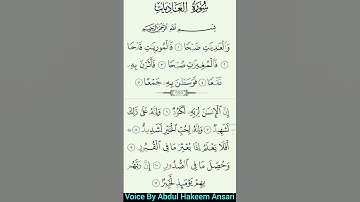 سُورَةُ العَادِيَات
بِسْمِ اللَّهِ الرَّحْمَٰنِ الرَّحِيمِ
وَالْعَٰدِيَٰتِ ضَبْحًا ١ فَالْمُورِيَٰتِ قَدْحًا
٢ فَالْمُغِيرَٰتِ صُبْحًا ٣ فَأَثَرْنَ بِهِۦ
نَقْعًا ٤ فَوَسَطْنَ بِهِۦ جَمْعًا ٥
إِنَّ الْإِنسَٰنَ لِرَبِّهِۦ لَكَنُودٌ ٦ وَإِنَّهُۥ عَلَىٰ ذَٰلِكَ
لَشَهِيدٌ ٧ وَإِنَّهُۥ لِحُبِّ الْخَيْرِ لَشَدِيدٌ ٨
أَفَلَا يَعْلَمُ إِذَا بُعْثِرَ مَا فِي الْقُبُورِ ٩
وَحُصِّلَ مَا فِي الصُّدُورِ ١٠ إِنَّ رَبَّهُم
بِهِمْ يَوْمَئِذٍ لَّخَبِيرٌ ١١
Voice By Abdul Hakeem Ansari